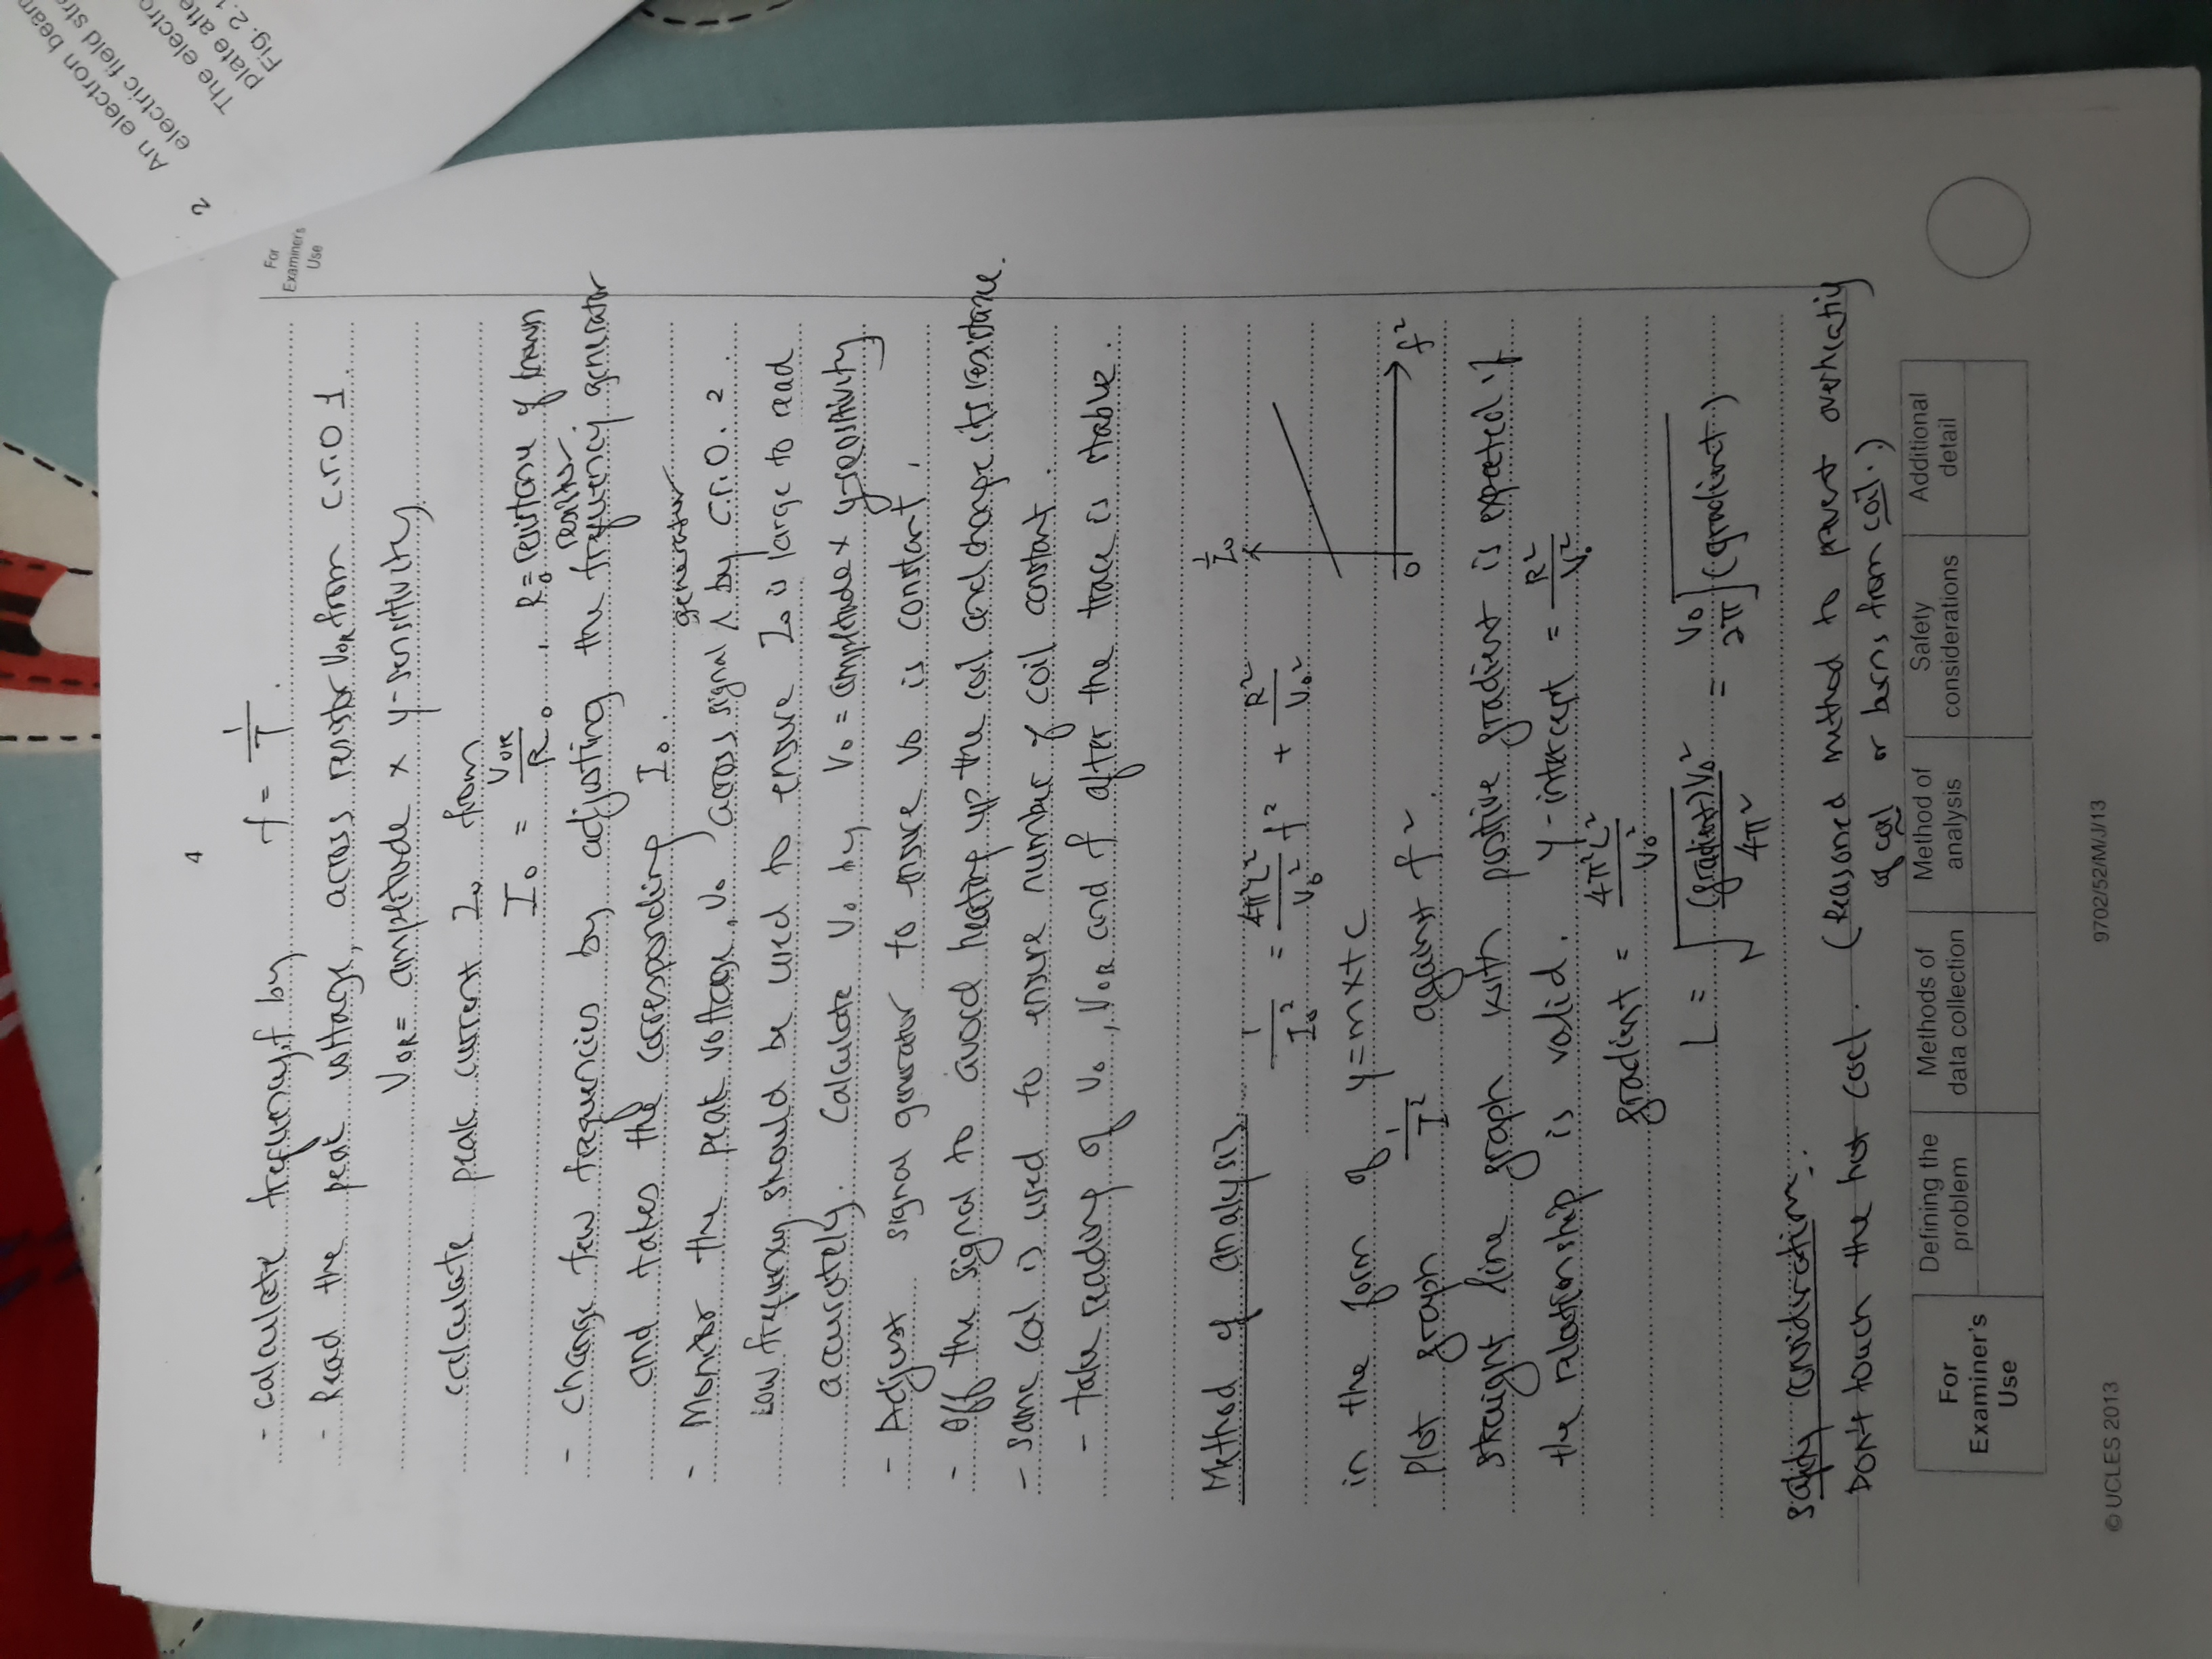 4
- calculate frequency,f by f = 1/T.
For
Examiner's
Use
- Read the peak voltage, across resistor V0R from c.r.o 1.
V0R = amplitude × y-sensitivity
calculate peak current I0 from
I0 = V0R/R0 , R0 = resistance of known resistor.
- change few frequencies by adjusting the frequency generator
and takes the corresponding I0.
- Monitor the peak voltage, V0 across signal generator by c.r.O. 2.
Low frequency should be used to ensure I0 is large to read
accurately. Calculate V0 by V0 = amplitude × y-sensitivity
- Adjust signal generator to ensure V0 is constant.
- Off the signal to avoid heating up the coil and change its resistance.
- same coil is used to ensure number of coil constant.
- take reading of V0, V0R and f after the trace is stable.
Method of analysis
1/I0² = 4π²L²/V0² f² + R²/V0²
1/I0
0
f²
in the form of y=mx+c
Plot graph 1/I² against f².
straight line graph with positive gradient is expected if
the relationship is valid. y-intercept = R²/V0²
gradient = 4π²L²/V0²
L = √((gradient)V0²/4π²) = V0/2π √(gradient)
safety consideration.
Don't touch the hot coil. (Reasoned method to prevent overheating
of coil or burns from coil.)
For Examiner's Use
Defining the problem
Methods of data collection
Method of analysis
Safety considerations
Additional detail
© UCLES 2013
9702/52/M/J/13
2
An electron beam
electric field
The electro
plate afte
Fig. 2.1